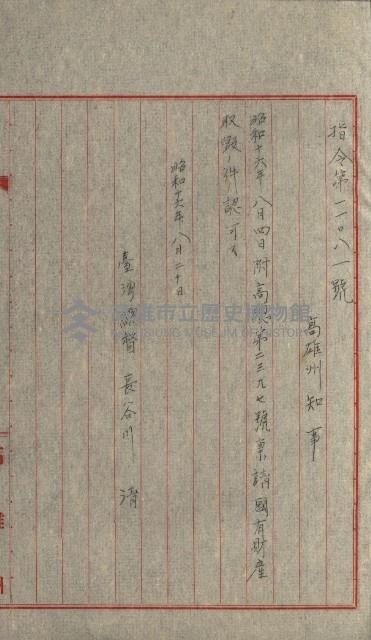 指令第一一〇八一號
高雄州知事
昭和十六年八月四日附高第二三九七號稟請國有財産
取毀ノ件認可ス
昭和十六年八月二十日
臺灣總督 長谷川 清
高雄市立歷史博物館
KAOHSIUNG MUSEUM OF HISTORY
雄
州